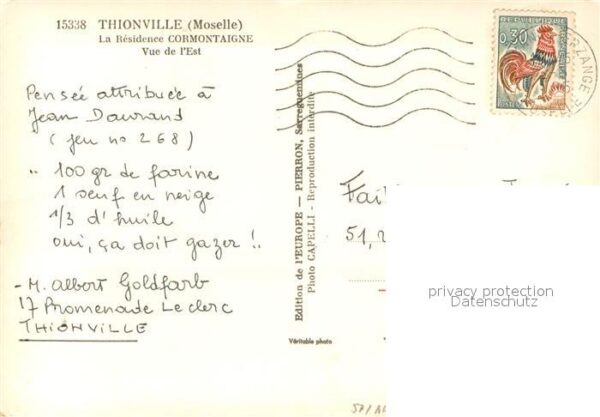 15338 THIONVILLE (Moselle)
La Résidence CORMONTAIGNE
Vue de l'Est
Pensée attribuée à
Jean Daurand
(jeu no 268)
" 100 gr de farine
1 oeuf en neige
1/3 d'huile
oui, ça doit gazer !!
- M. Albert Goldfarb
17 Promenade Leclerc
THIONVILLE
Edition de l'EUROPE — PIERRON, Sarreguemines
Photo CAPELLI - Reproduction interdite
Véritable photo
REPUBLIQUE FRANÇAISE
0,30
POSTES
51, 
privacy protection
Datenschutz